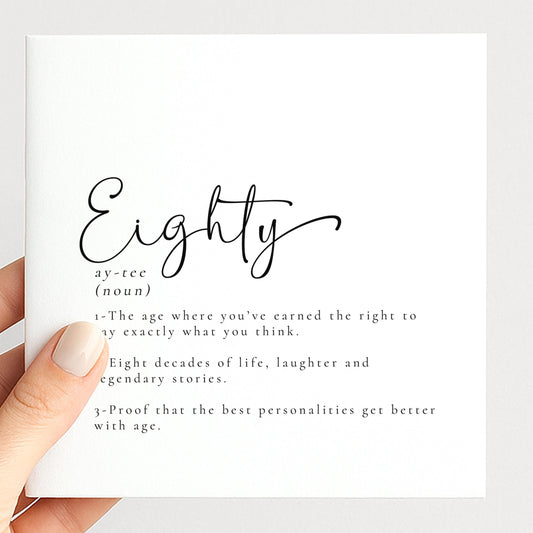 Eighty
ay-tee
(noun)
1-The age where you've earned the right to
ay exactly what you think.
Eight decades of life, laughter and
egendary stories.
3-Proof that the best personalities get better
with age.